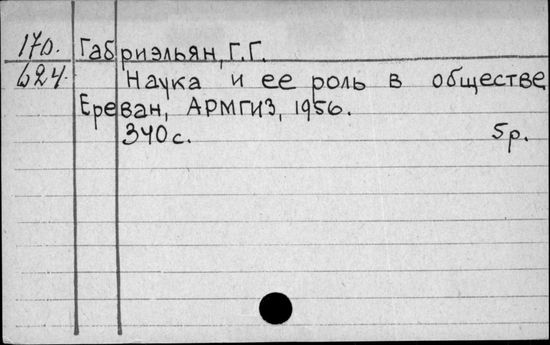 170. Габриэльян, Г.Г.
624. Наука и ее роль в обществе
Ереван, АРМГИЗ, 1956.
340 с. 5р.